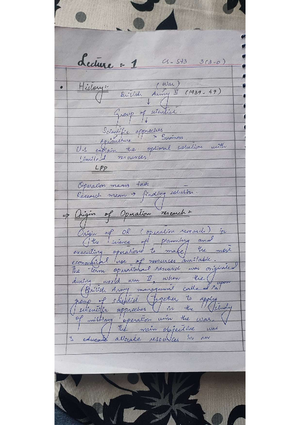 Lecture - 1
History:- (War)
British Army & (1939-45)
Group of
Scientific approaches
Agriculture → Business
U.S. the optimal solution with
limited resources
LPP
Operation means task
Research means → finding solution
→ Origin of Operation research
Origin of OR (operation research) is
(the science of planning and
executing operation to make the most
economical use of resources available.
The term operational research was originated
during world war II, when the
(British army management called a
group of together to apply
scientific approaches in the (study
of military operation the war.
The main objective was
allocate resources in an